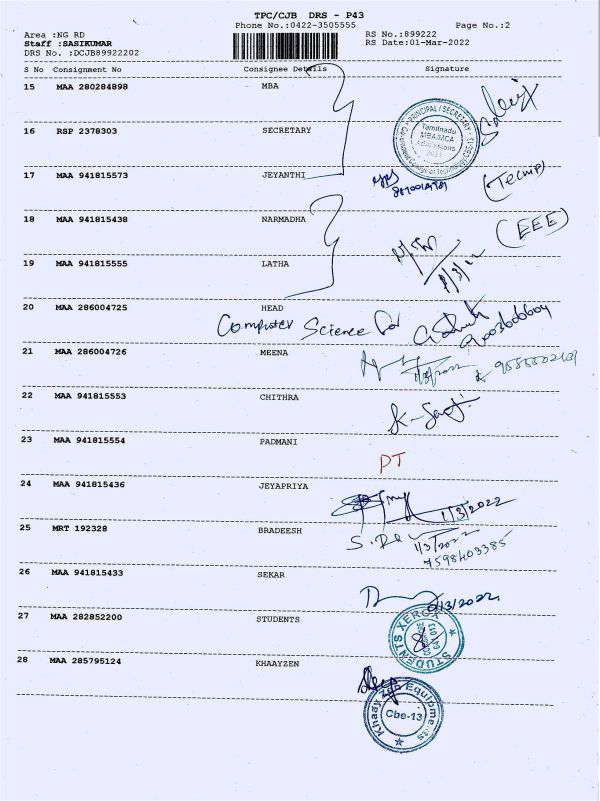 TPC/CJB DRS - P43
Phone No.:0422-3505555 Page No.:2
Area :NG RD RS No.:899222
Staff :SASIKUMAR RS Date:01-Mar-2022
DRS No. :DCJB89922202
S No Consignment No Consignee Details Signature
15 MAA 280284898 MBA
16 RSP 2378303 SECRETARY
PRINCIPAL / SECRETARY
Tamilnadu
MBA/MCA
Admissions
2021
17 MAA 941815573 JEYANTHI
18 MAA 941815438 NARMADHA
(EEE)
19 MAA 941815555 LATHA
1/3/22
20 MAA 286004725 HEAD
Computer Science For
9003606604
21 MAA 286004726 MEENA
22 MAA 941815553 CHITHRA
23 MAA 941815554 PADMANI
PT
24 MAA 941815436 JEYAPRIYA
1/3/2022
25 MRT 192328 BRADEESH
1/3/2022
7598403385
26 MAA 941815433 SEKAR
1/3/2022
27 MAA 282852200 STUDENTS
STUDENTS XEROX
28 MAA 285795124 KHAAYZEN
Khaay Zen Equipments
Cbe-13